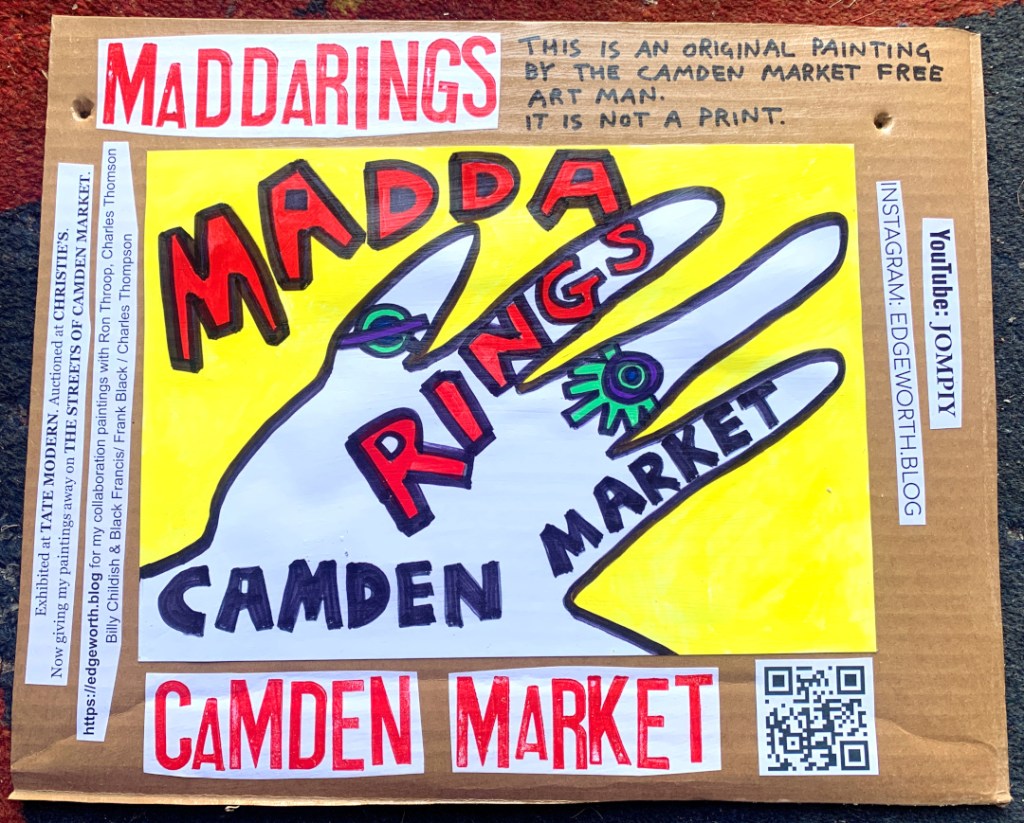 MADDARINGS
THIS IS AN ORIGINAL PAINTING
BY THE CAMDEN MARKET FREE
ART MAN.
IT IS NOT A PRINT.
Exhibited at TATE MODERN. Auctioned at CHRISTIE'S.
Now giving my paintings away on THE STREETS OF CAMDEN MARKET.
https://edgeworth.blog for my collaboration paintings with Ron Throop, Charles Thomson
Billy Childish & Black Francis/ Frank Black / Charles Thompson
MADDA
RINGS
CAMDEN
MARKET
YouTube: JOMPIY
INSTAGRAM: EDGEWORTH.BLOG
CAMDEN MARKET